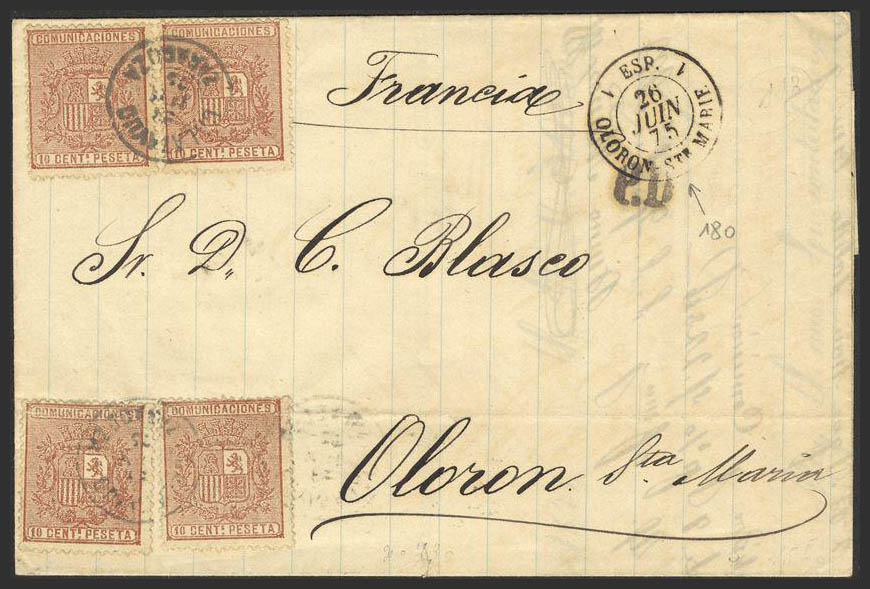 COMUNICACIONES
10 CENTS PESETA
COMUNICACIONES
10 CENTS PESETA
ZARAGOZA
Francia
ESP.
1 1
26
JUIN
75
OLORON-STE MARIE
P.D
180
Sr. D. C. Blasco
COMUNICACIONES
10 CENTS PESETA
COMUNICACIONES
10 CENTS PESETA
Oloron Sta Maria